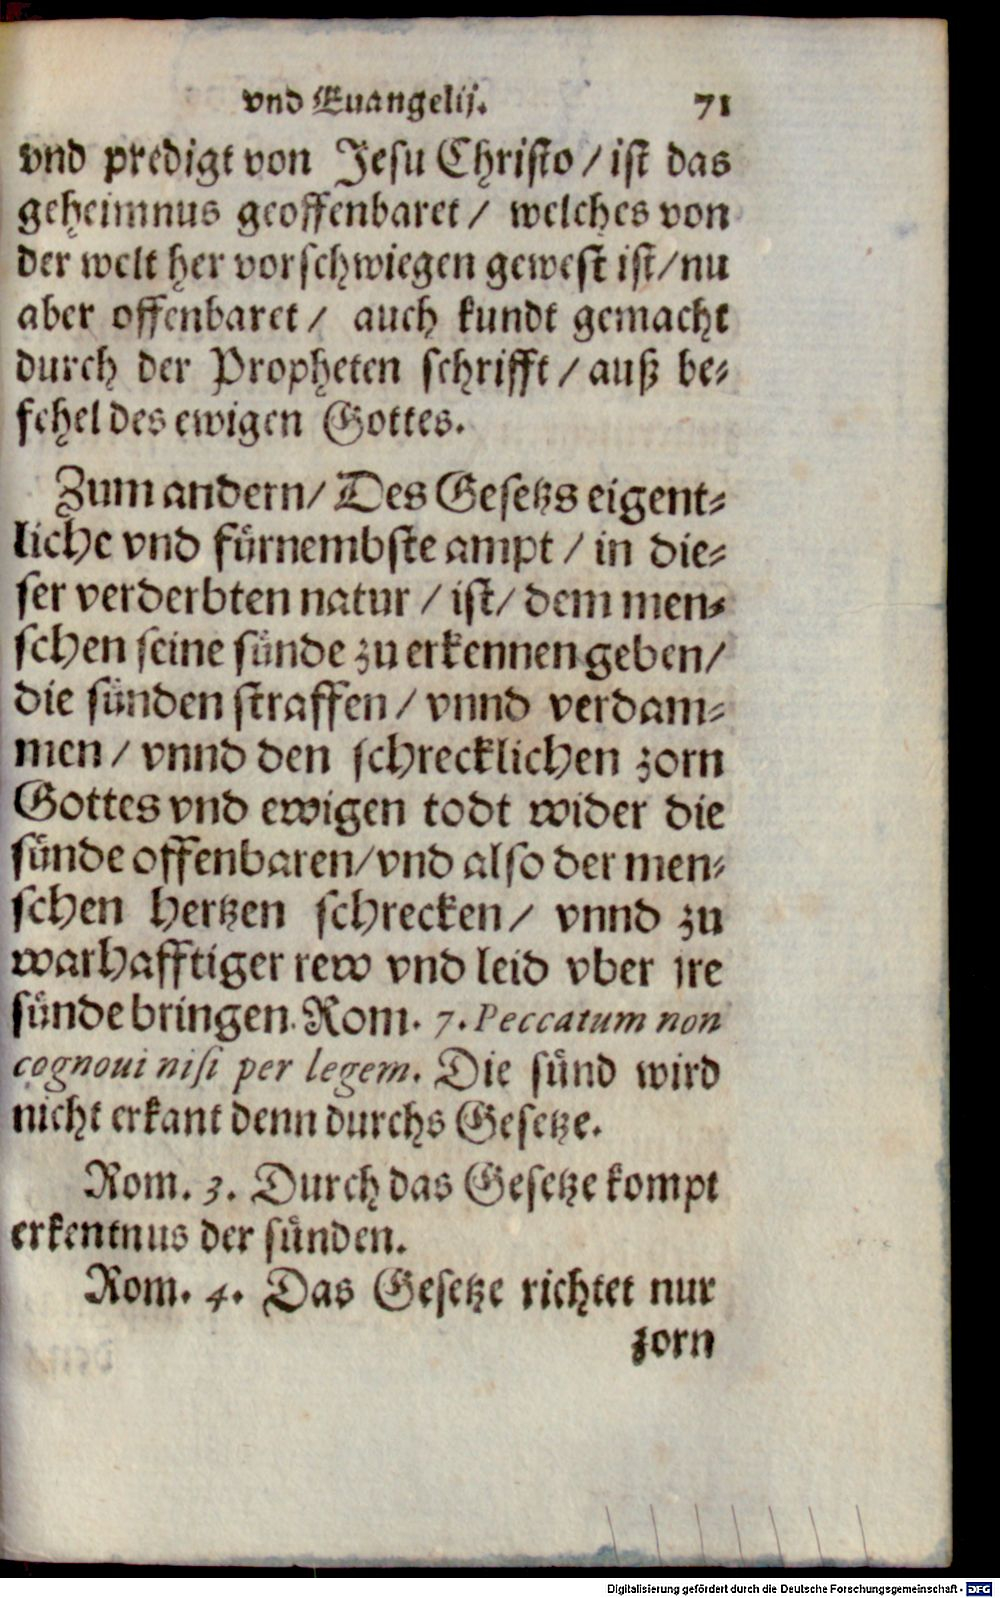 vnd Euangelij. 71
vnd predigt von Jesu Christo / ist das
geheimnus geoffenbaret / welches von
der welt her vorschwiegen gewest ist / nu
aber offenbaret / auch kundt gemacht
durch der Propheten schrifft / auß be-
fehel des ewigen Gottes.
Zum andern / Des Gesetzs eigent-
liche vnd fürnembste ampt / in die-
ser verderbten natur / ist / dem men-
schen seine sünde zu erkennen geben /
die sünden straffen / vnnd verdam-
men / vnnd den schrecklichen zorn
Gottes vnd ewigen todt wider die
sünde offenbaren / vnd also der men-
schen hertzen schrecken / vnnd zu
warhafftiger rew vnd leid vber ire
sünde bringen. Rom. 7. Peccatum non
cognoui nisi per legem. Die sünd wird
nicht erkant denn durchs Gesetze.
Rom. 3. Durch das Gesetze kompt
erkentnus der sünden.
Rom. 4. Das Gesetze richtet nur
zorn
Digitalisierung gefördert durch die Deutsche Forschungsgemeinschaft - DFG